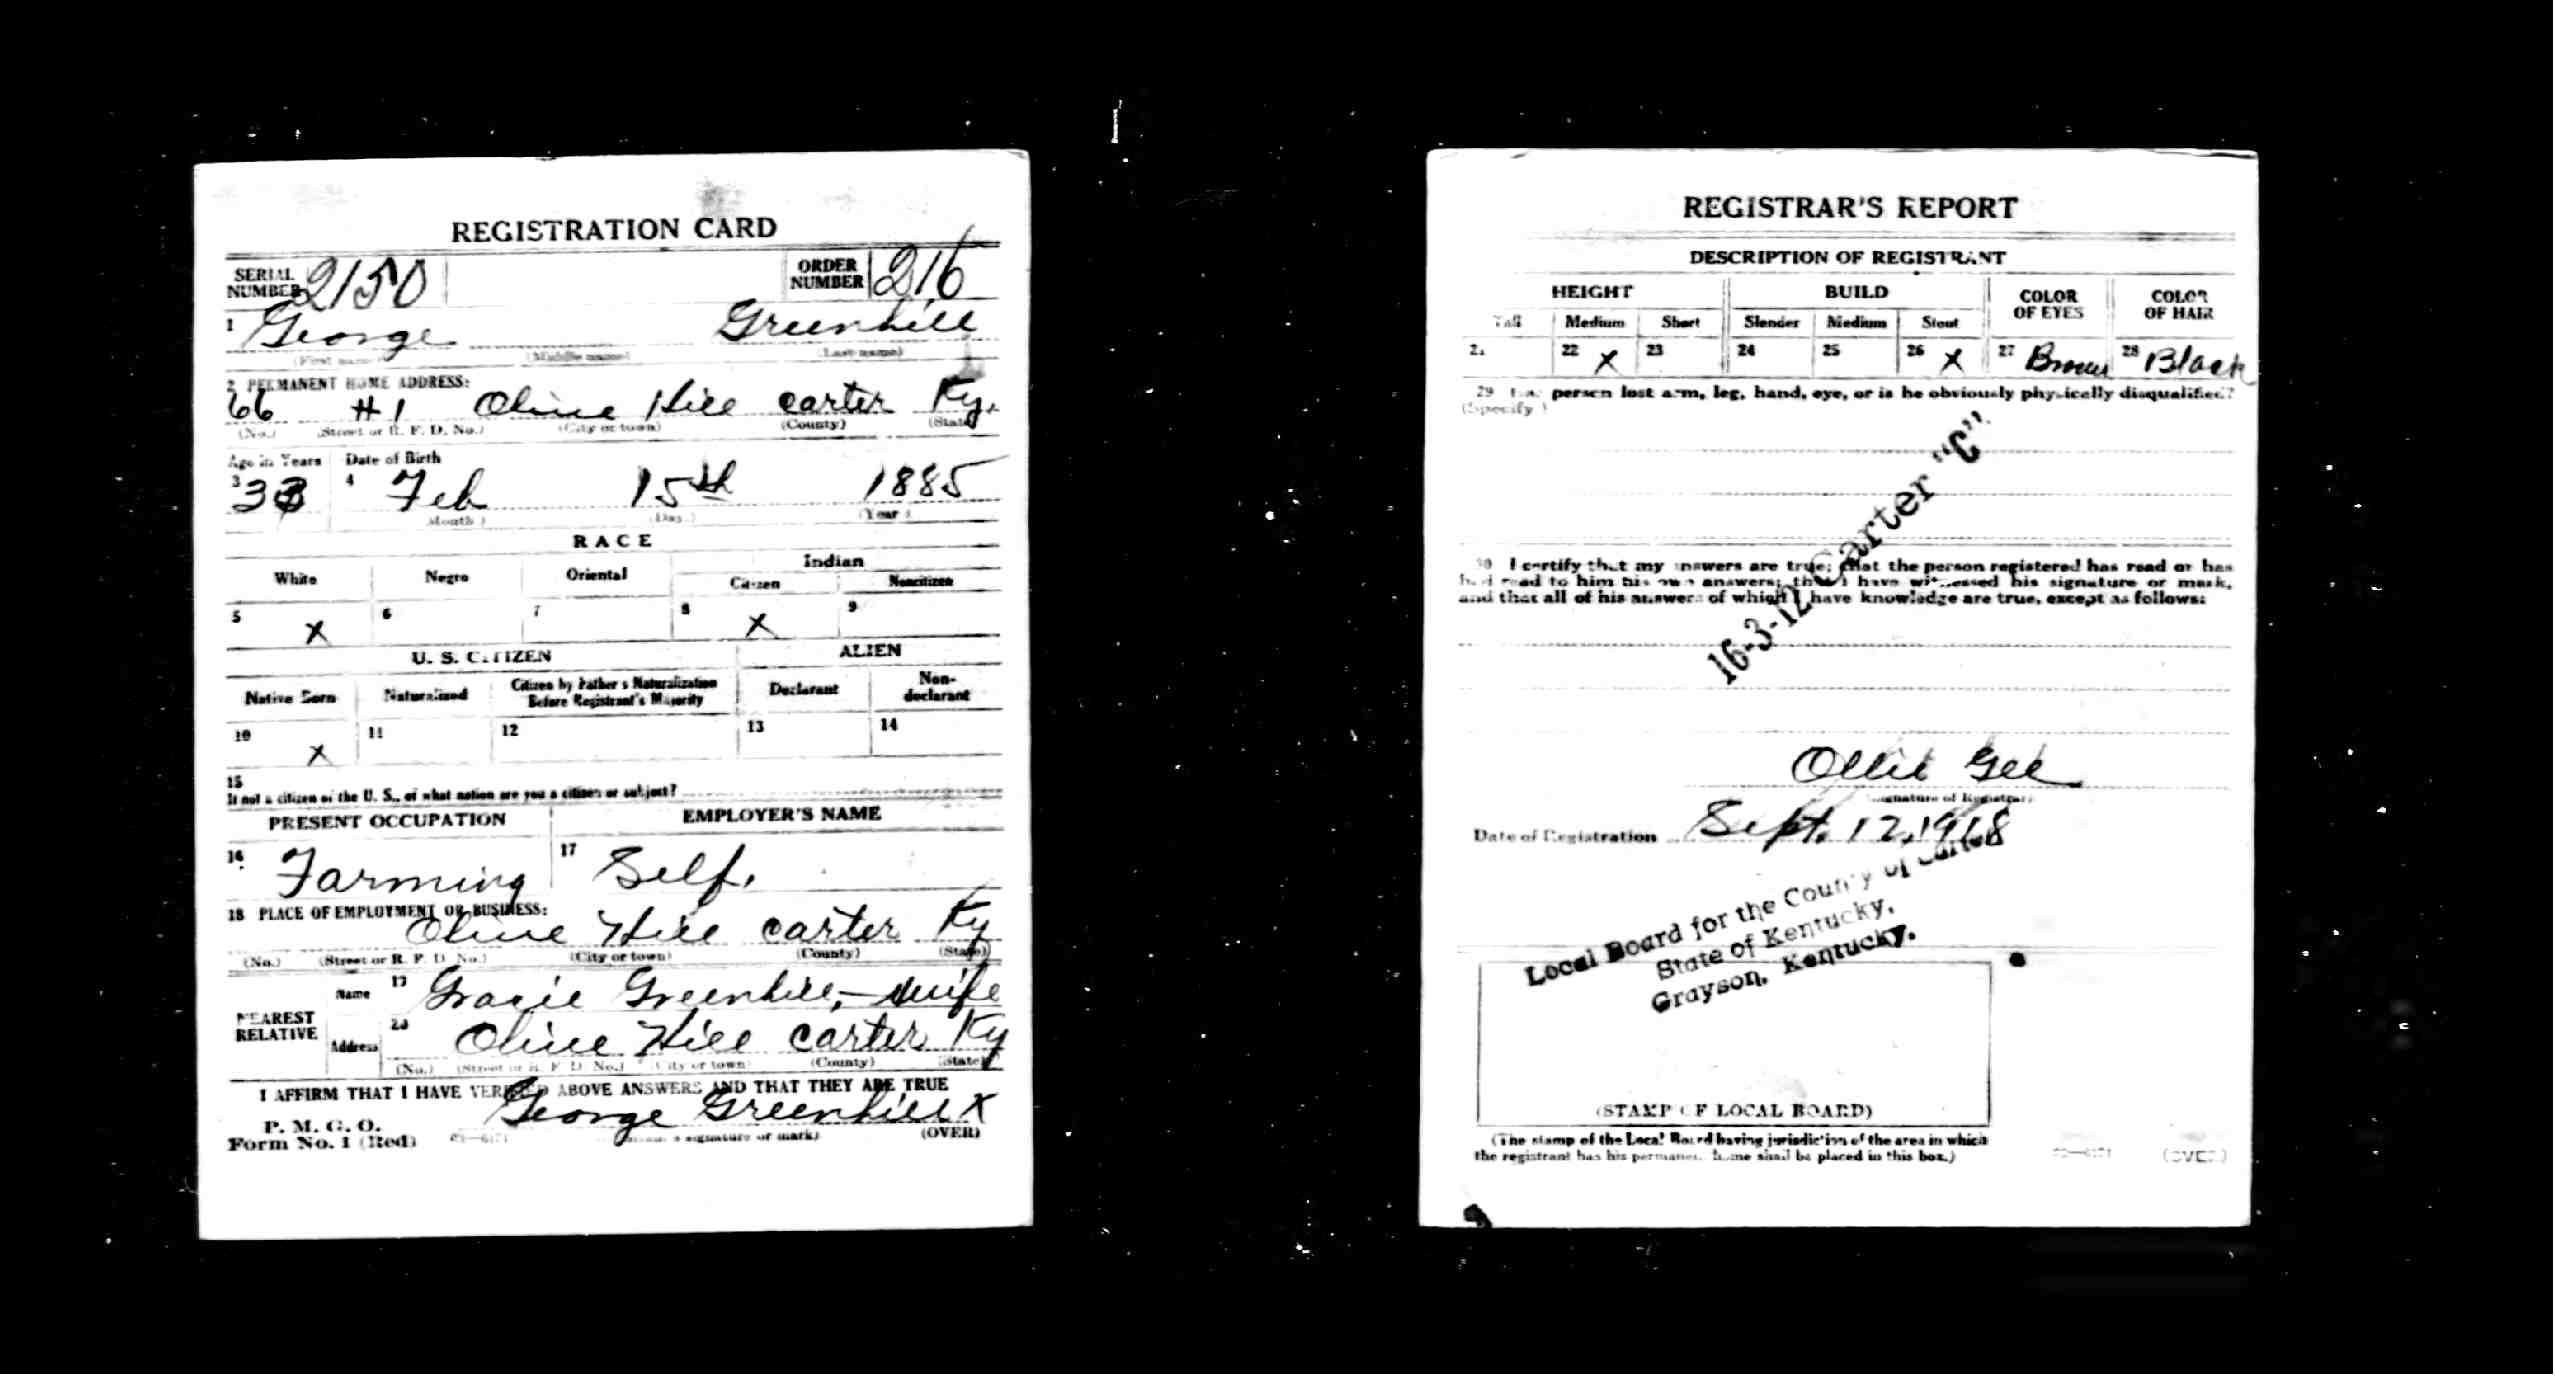 REGISTRATION CARD
SERIAL NUMBER 2150 ORDER NUMBER 216
1 George Greenhill
(First name) (Middle name) (Last name)
2 PERMANENT HOME ADDRESS:
66 #1 Olive Hill carter Ky.
(No.) (Street or R. F. D. No.) (City or town) (County) (State)
Age in Years Date of Birth
3 33 4 Feb 15th 1885
(Month) (Day) (Year)
RACE
White Negro Oriental Indian
Citizen Noncitizen
5 X 6 7 8 X 9
U. S. CITIZEN ALIEN
Native Born Naturalized Citizen by Father's Naturalization Before Registrant's Majority Declarant Non-declarant
10 X 11 12 13 14
15
If not a citizen of the U. S., of what nation are you a citizen or subject?
PRESENT OCCUPATION EMPLOYER'S NAME
16 Farming 17 Self.
18 PLACE OF EMPLOYMENT OR BUSINESS:
Olive Hill carter Ky
(No.) (Street or R. F. D. No.) (City or town) (County) (State)
NEAREST RELATIVE
Name 19 Gracie Greenhill, - wife
Address 20 Olive Hill carter Ky
(No.) (Street or R. F. D. No.) (City or town) (County) (State)
I AFFIRM THAT I HAVE VERIFIED ABOVE ANSWERS AND THAT THEY ARE TRUE
George Greenhill X
P. M. G. O.
Form No. 1 (Red) signature or mark) (OVER)
REGISTRAR'S REPORT
DESCRIPTION OF REGISTRANT
HEIGHT BUILD COLOR OF EYES COLOR OF HAIR
Tall Medium Short Slender Medium Stout
21 22 X 23 24 25 26 X 27 Brown 28 Black
29 Has person lost arm, leg, hand, eye, or is he obviously physically disqualified?
(Specify.)
16-3-12 Carter "C"
30 I certify that my answers are true; that the person registered has read or has
had read to him his own answers; that I have witnessed his signature or mark,
and that all of his answers of which I have knowledge are true, except as follows:
Ollie Gee
(Signature of Registrar)
Date of Registration Sept. 12, 1918
Local Board for the County of Carter
State of Kentucky,
Grayson, Kentucky.
(STAMP OF LOCAL BOARD)
(The stamp of the Local Board having jurisdiction of the area in which
the registrant has his permanent home shall be placed in this box.)
(OVER)